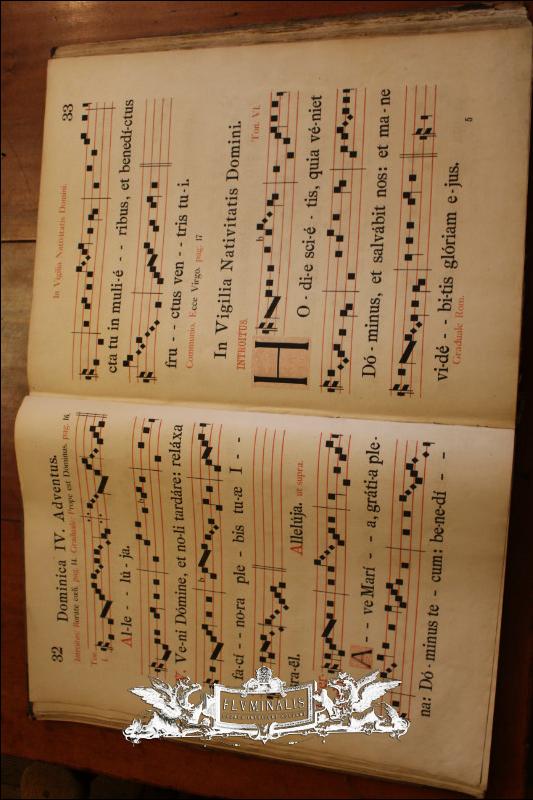 32
Dominica IV. Adventus.
Introitus Rorate cœli. pag. 14. Graduale Prope est Dominus. pag. 16.
Ton.
Al-le - - lú - ja.
Ve-ni Dómine, et no-li tardáre: reláxa
fa-cí - - no-ra ple - bis tu-æ I - -
ra-ël. Allelúja. ut supra.
A - - ve Marí - - a, grátia ple-
na: Dó-minus te - cum: be-ne-dí - -
In Vigilia Nativitatis Domini. 33
cta tu in muli-é - - ribus, et benedíctus
fru - - ctus ven - - tris tu-i.
Communio, Ecce Virgo. pag. 17
In Vigilia Nativitatis Domini.
INTROITUS. Ton. VI.
HO - di-e sci-é - tis, quia vé-niet
Dó-minus, et salvábit nos: et ma-ne
vi-dé - - bi-tis glóriam e-jus.
Graduale Rom. 5
FLVMINALIS